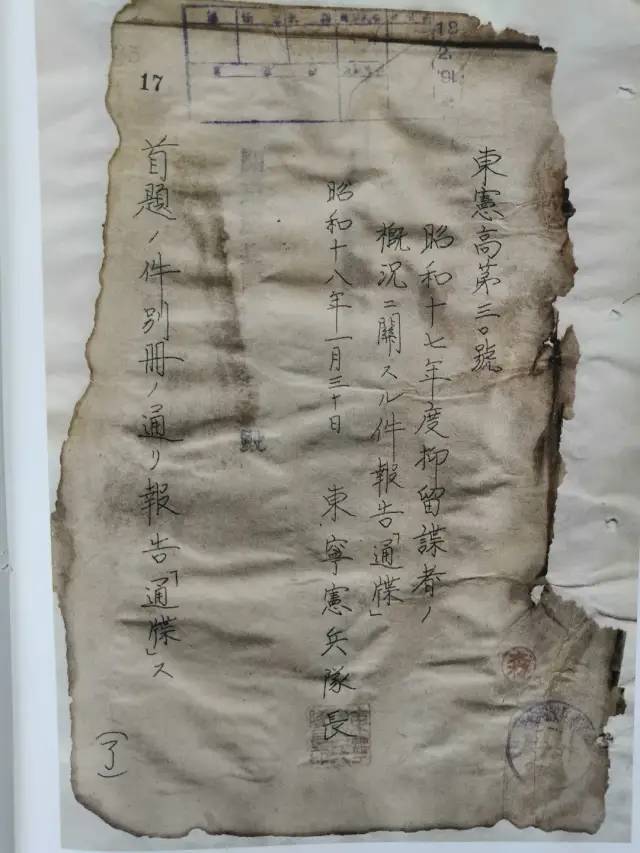 東憲高第三〇號
昭和十七年度抑留諜者ノ
概況ニ關スル件報告「通牒」
昭和十八年一月三十日
東寧憲兵隊長
首題ノ件別冊ノ通リ報告「通牒」ス
(了)
17
18